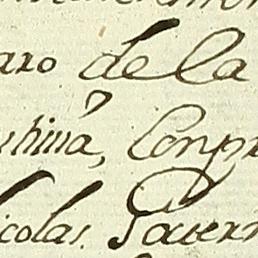 aro de la
china, Conpr
icolas. Tavern